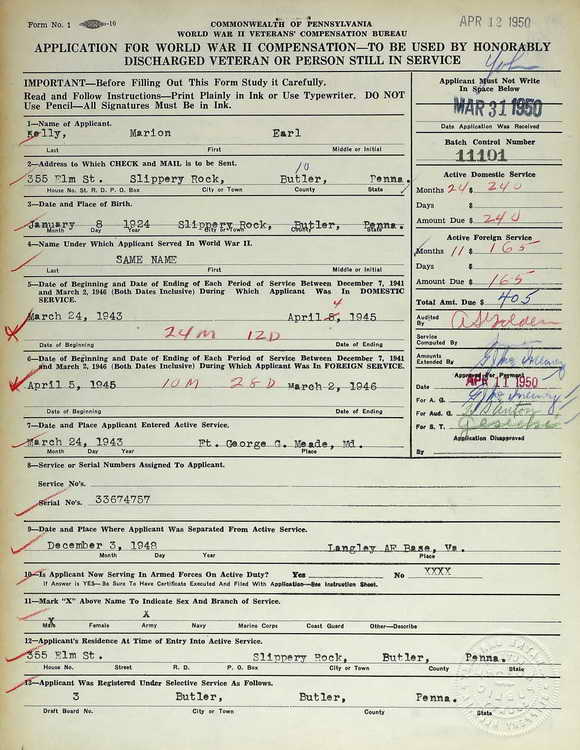 Form No. 1 —10
COMMONWEALTH OF PENNSYLVANIA
APR 12 1950
WORLD WAR II VETERANS' COMPENSATION BUREAU
APPLICATION FOR WORLD WAR II COMPENSATION—TO BE USED BY HONORABLY
DISCHARGED VETERAN OR PERSON STILL IN SERVICE
IMPORTANT—Before Filling Out This Form Study it Carefully.
Read and Follow Instructions—Print Plainly in Ink or Use Typewriter. DO NOT
Use Pencil—All Signatures Must Be in Ink.
1—Name of Applicant.
Kelly, Marion Earl
Last First Middle or Initial
2—Address to Which CHECK and MAIL is to be Sent.
10
355 Elm St. Slippery Rock, Butler, Penna.
House No. St. R. D. P. O. Box City or Town County State
3—Date and Place of Birth.
January 8 1924 Slippery Rock, Butler, Penna.
Month Day Year City or Town County State
4—Name Under Which Applicant Served In World War II.
SAME NAME
Last First Middle or Initial
5—Date of Beginning and Date of Ending of Each Period of Service Between December 7, 1941
and March 2, 1946 (Both Dates Inclusive) During Which Applicant Was In DOMESTIC
SERVICE.
4
March 24, 1943 April 5, 1945
24M 12D
Date of Beginning Date of Ending
6—Date of Beginning and Date of Ending of Each Period of Service Between December 7, 1941
and March 2, 1946 (Both Dates Inclusive) During Which Applicant Was In FOREIGN SERVICE.
April 5, 1945 10M 28D March 2, 1946
Date of Beginning Date of Ending
7—Date and Place Applicant Entered Active Service.
March 24, 1943 Ft. George G. Meade, Md.
Month Day Year Place
8—Service or Serial Numbers Assigned To Applicant.
Service No's.
Serial No's. 33674757
9—Date and Place Where Applicant Was Separated From Active Service.
December 3, 1948 Langley AF Base, Va.
Month Day Year Place
10—Is Applicant Now Serving In Armed Forces On Active Duty? Yes No XXXX
If Answer is YES—Be Sure To Have Certificate Executed And Filed With Application—See Instruction Sheet.
11—Mark "X" Above Name To Indicate Sex and Branch of Service.
X X
Male Female Army Navy Marine Corps Coast Guard Other—Describe
12—Applicant's Residence At Time of Entry Into Active Service.
355 Elm St. Slippery Rock, Butler, Penna.
House No. Street R. D. P. O. Box City or Town County State
13—Applicant Was Registered Under Selective Service As Follows.
3 Butler, Butler, Penna.
Draft Board No. City or Town County State
Applicant Must Not Write
In Space Below
MAR 31 1950
Date Application Was Received
Batch Control Number
11101
Active Domestic Service
Months 24 $ 240
Days $
Amount Due $ 240
Active Foreign Service
Months 11 $ 165
Days $
Amount Due $ 165
Total Amt. Due $ 405
Audited
By
Service
Computed By
Amounts
Extended By
Approved For Payment
Date APR 11 1950
For A. G.
For Aud. G.
For S. T.
Application Disapproved
By